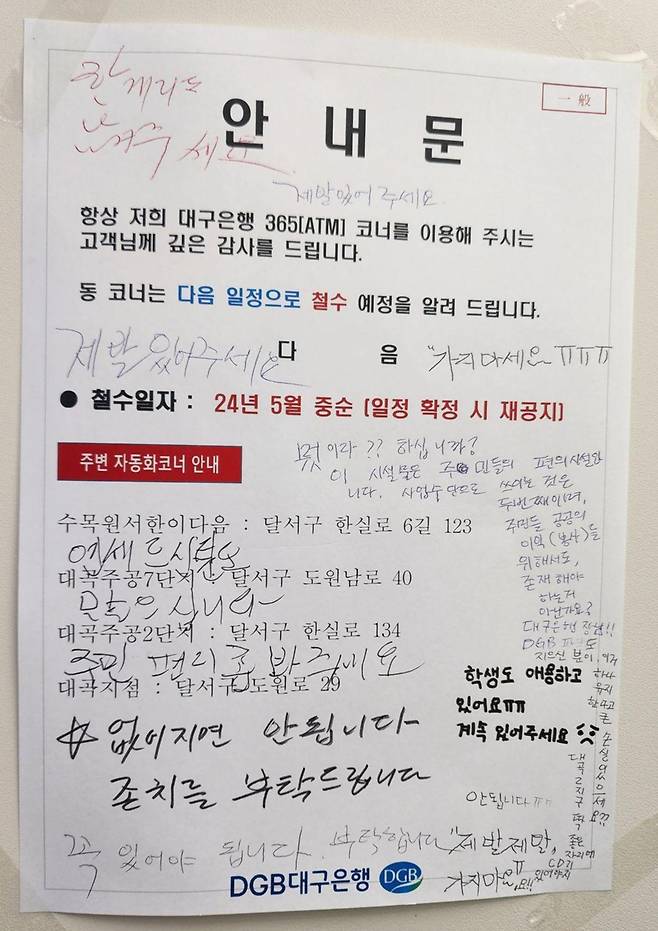 一般
안 내 문
제발있어 주세요.
항상 저희 대구은행 365[ATM] 코너를 이용해 주시는
고객님께 깊은 감사를 드립니다.
동 코너는 다음 일정으로 철수 예정을 알려 드립니다.
제발 있어주세요
다 음
"가지마세요 ㅠㅠㅠ
● 철수일자 : 24년 5월 중순 [일정 확정 시 재공지]
주변 자동화코너 안내
뭣이라?? 하십니까?
이 시설물은 주민들의 편의시설입
니다. 사업수단으로 쓰이는 것은
두번째이며,
주민들 공공의
이익(봉사)를
위해서도,
존재해야
하는거
아닌가요?
대구은행장님!!
수목원서한이다음 : 달서구 한실로 6길 123
대곡주공7단지 : 달서구 도원남로 40
대곡주공2단지 : 달서구 한실로 134
주민 편리를 봐주세요
대곡지점 : 달서구 도원로 29
학생도 애용하고
있어요ㅠㅠ
계속 있어주세요
☆ 없어지면 안됩니다
존치를 부탁드립니다
안됩니다ㅠㅠ
꼭 있어야 됩니다. 부탁합니다
"제발제발,
가지마요!!
DGB대구은행 DGB